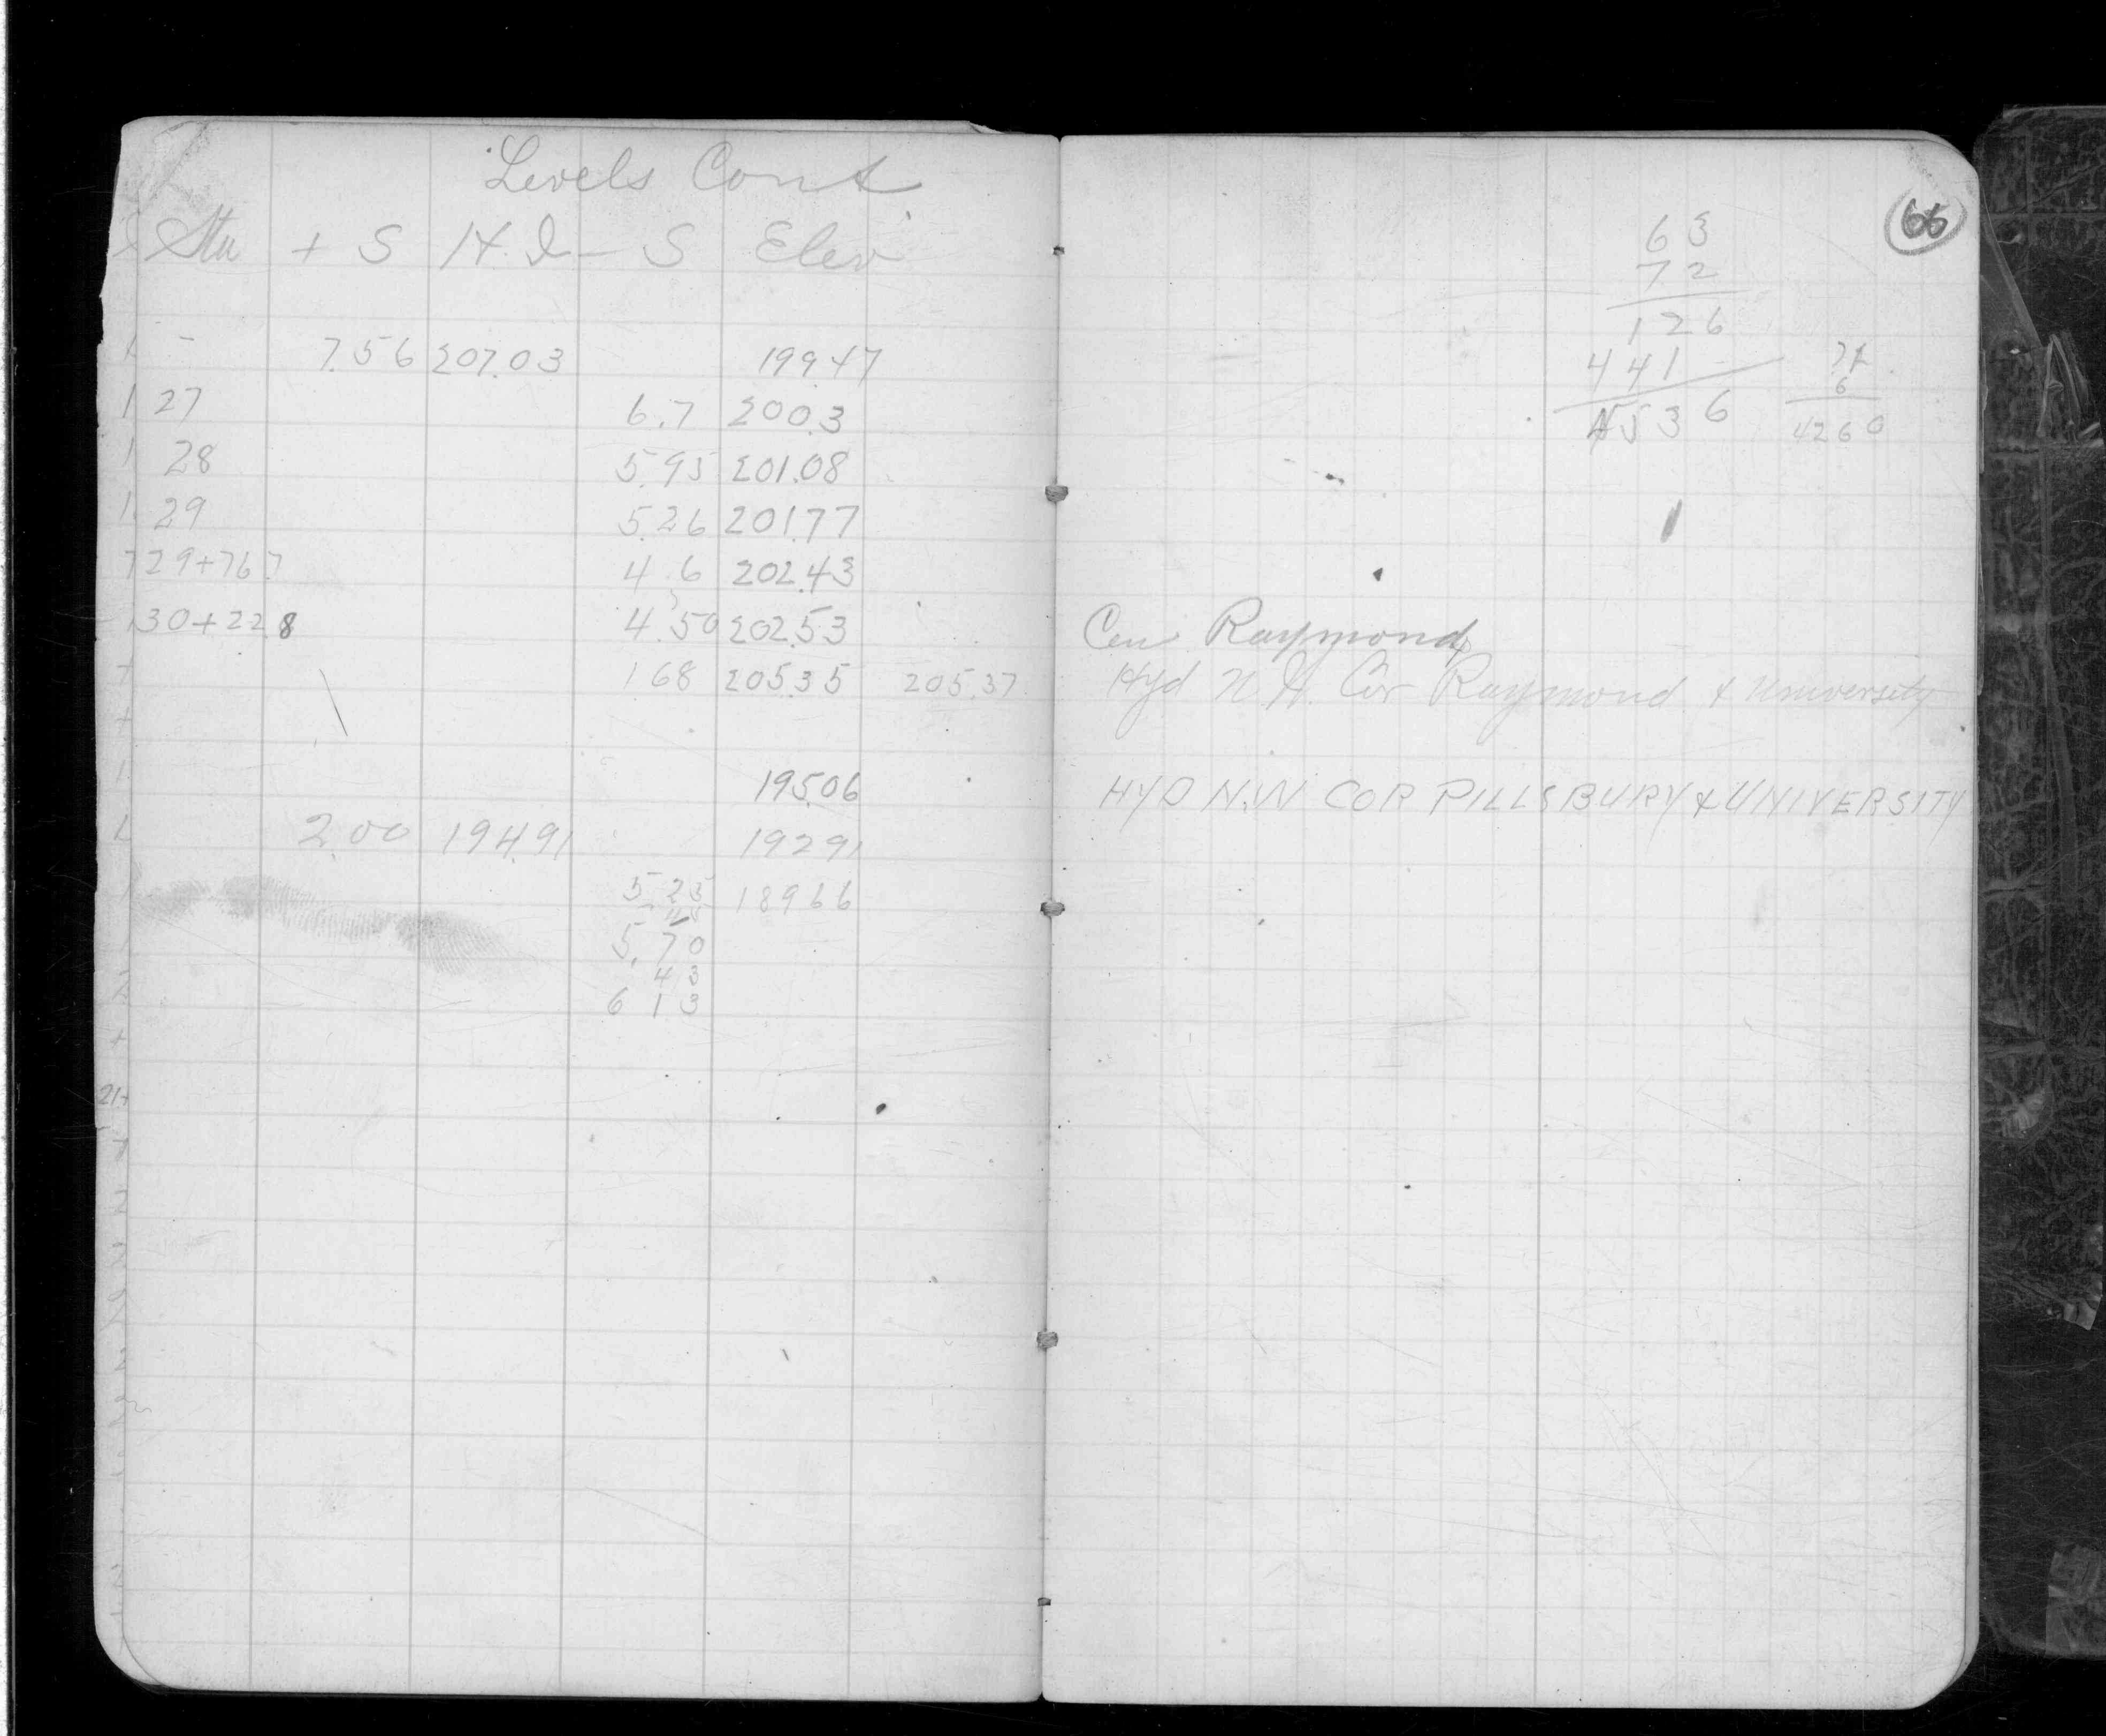 Levels Cont
Sta + S H.I - S Elev
- 7.56 207.03 199.47
27 6.7 200.3
28 5.95 201.08
29 5.26 201.77
29+76.7 4.6 202.43
30+22.8 4.50 202.53
1.68 205.35 205.37
195.06
2.00 194.91 192.91
5.25 189.66
5.70
43
6 13
66
63
72
126
441
4536
71
6
4260
Cen Raymond
Hyd N.W. Cor Raymond & University
HYD N.W COR PILLSBURY & UNIVERSITY